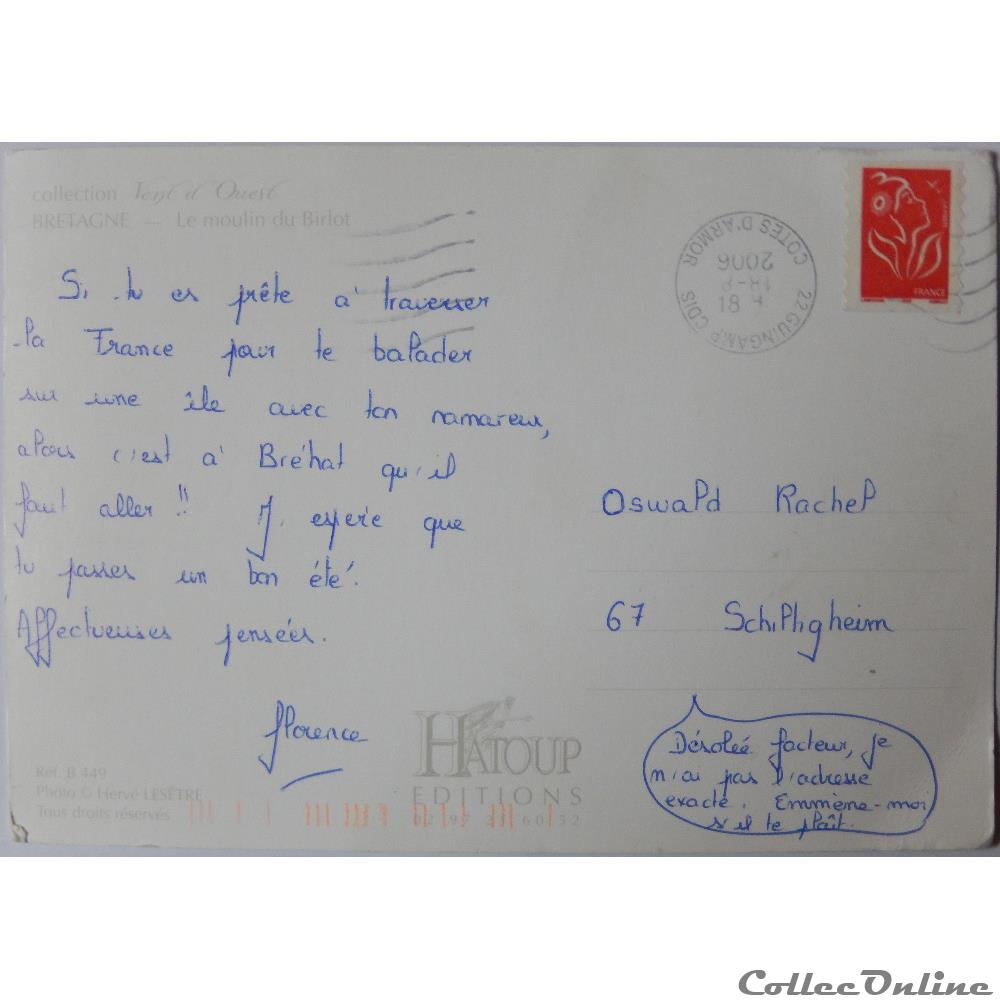 collection Vent d'Ouest
BRETAGNE — Le moulin du Birlot
22 GUINGAMP CDIS
COTES D'ARMOR
18
2006
FRANCE
Si tu es prête à traverser
la France pour te balader
sur une île avec ton namoureux,
alors c'est à Bréhat qu'il
faut aller !!  J'espère que
tu passes un bon été.
Affectueuses pensées.
florence
Oswald Rachel
67 Schiltigheim
Désolée facteur, je
n'ai pas l'adresse
exacte. Emmène-moi
s'il te plaît.
HATOUP
EDITIONS
Réf. B 449
Photo © Hervé LESÊTRE
Tous droits réservés
CollecOnline